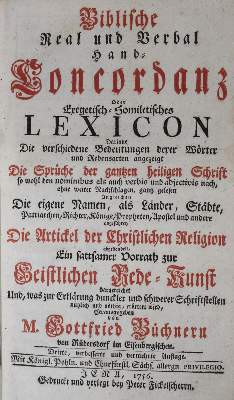 Biblische
Real und Verbal
Hand-
Concordanz
Oder
Exegetisch-Homiletisches
LEXICON
Darinne
Die verschiedene Bedeutungen derer Wörter
und Redensarten angezeigt
Die Sprüche der gantzen heiligen Schrift
so wohl den nominibus als auch verbis und adjectivis nach,
ohne weiter Nachschlagen, gantz gelesen
Die eigene Namen, als Länder, Städte,
Patriarchen, Richter, Könige, Propheten, Apostel und andere
Die Artickel der Christlichen Religion
abgehandelt
Ein sattsamer Vorrath zur
Geistlichen Rede-Kunst
dargereichet
Und, was zur Erklärung dunckler und schwerer Schriftstellen
nützlich und nöthig, erörtert wird,
Herausgegeben
von
M. Gottfried Büchnern
von Rüdersdorf im Eisenbergischen.
Dritte, verbesserte und vermehrte Auflage.
Mit Königl. Pohln. und Churfürstl. Sächs. allergn. PRIVILEGIO.
JENA, 1756.
Gedruckt und verlegt bey Peter Fickelscherrn.